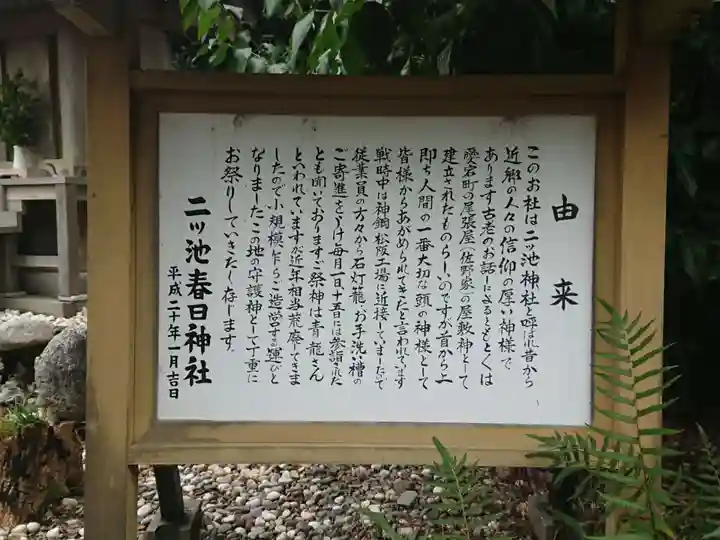 由来
このお社は二ッ池神社と呼ばれ昔から
近郷の人々の信仰の厚い神様で
あります古老のお話しによるともとくは
愛宕町の尾張屋(佐野家)の屋敷神として
建立されたものらしいのですが首から上
即ち人間の一番大切な頭の神様として
皆様からあがめられてきたと言われています
戦時中は神鋼松阪工場に近接していましたので
従業員の方々から石灯籠、お手洗い槽の
ご寄進をいただけ毎月一日十五日には参詣された
とも聞いておりますご祭神は青龍さん
といわれていますが近年相当荒廃してきま
したので小規模乍らご造営する運びと
なりましたこの地の守護神として丁重に
お祭りしていきたし存じます。
二ッ池春日神社
平成二十年一月吉日